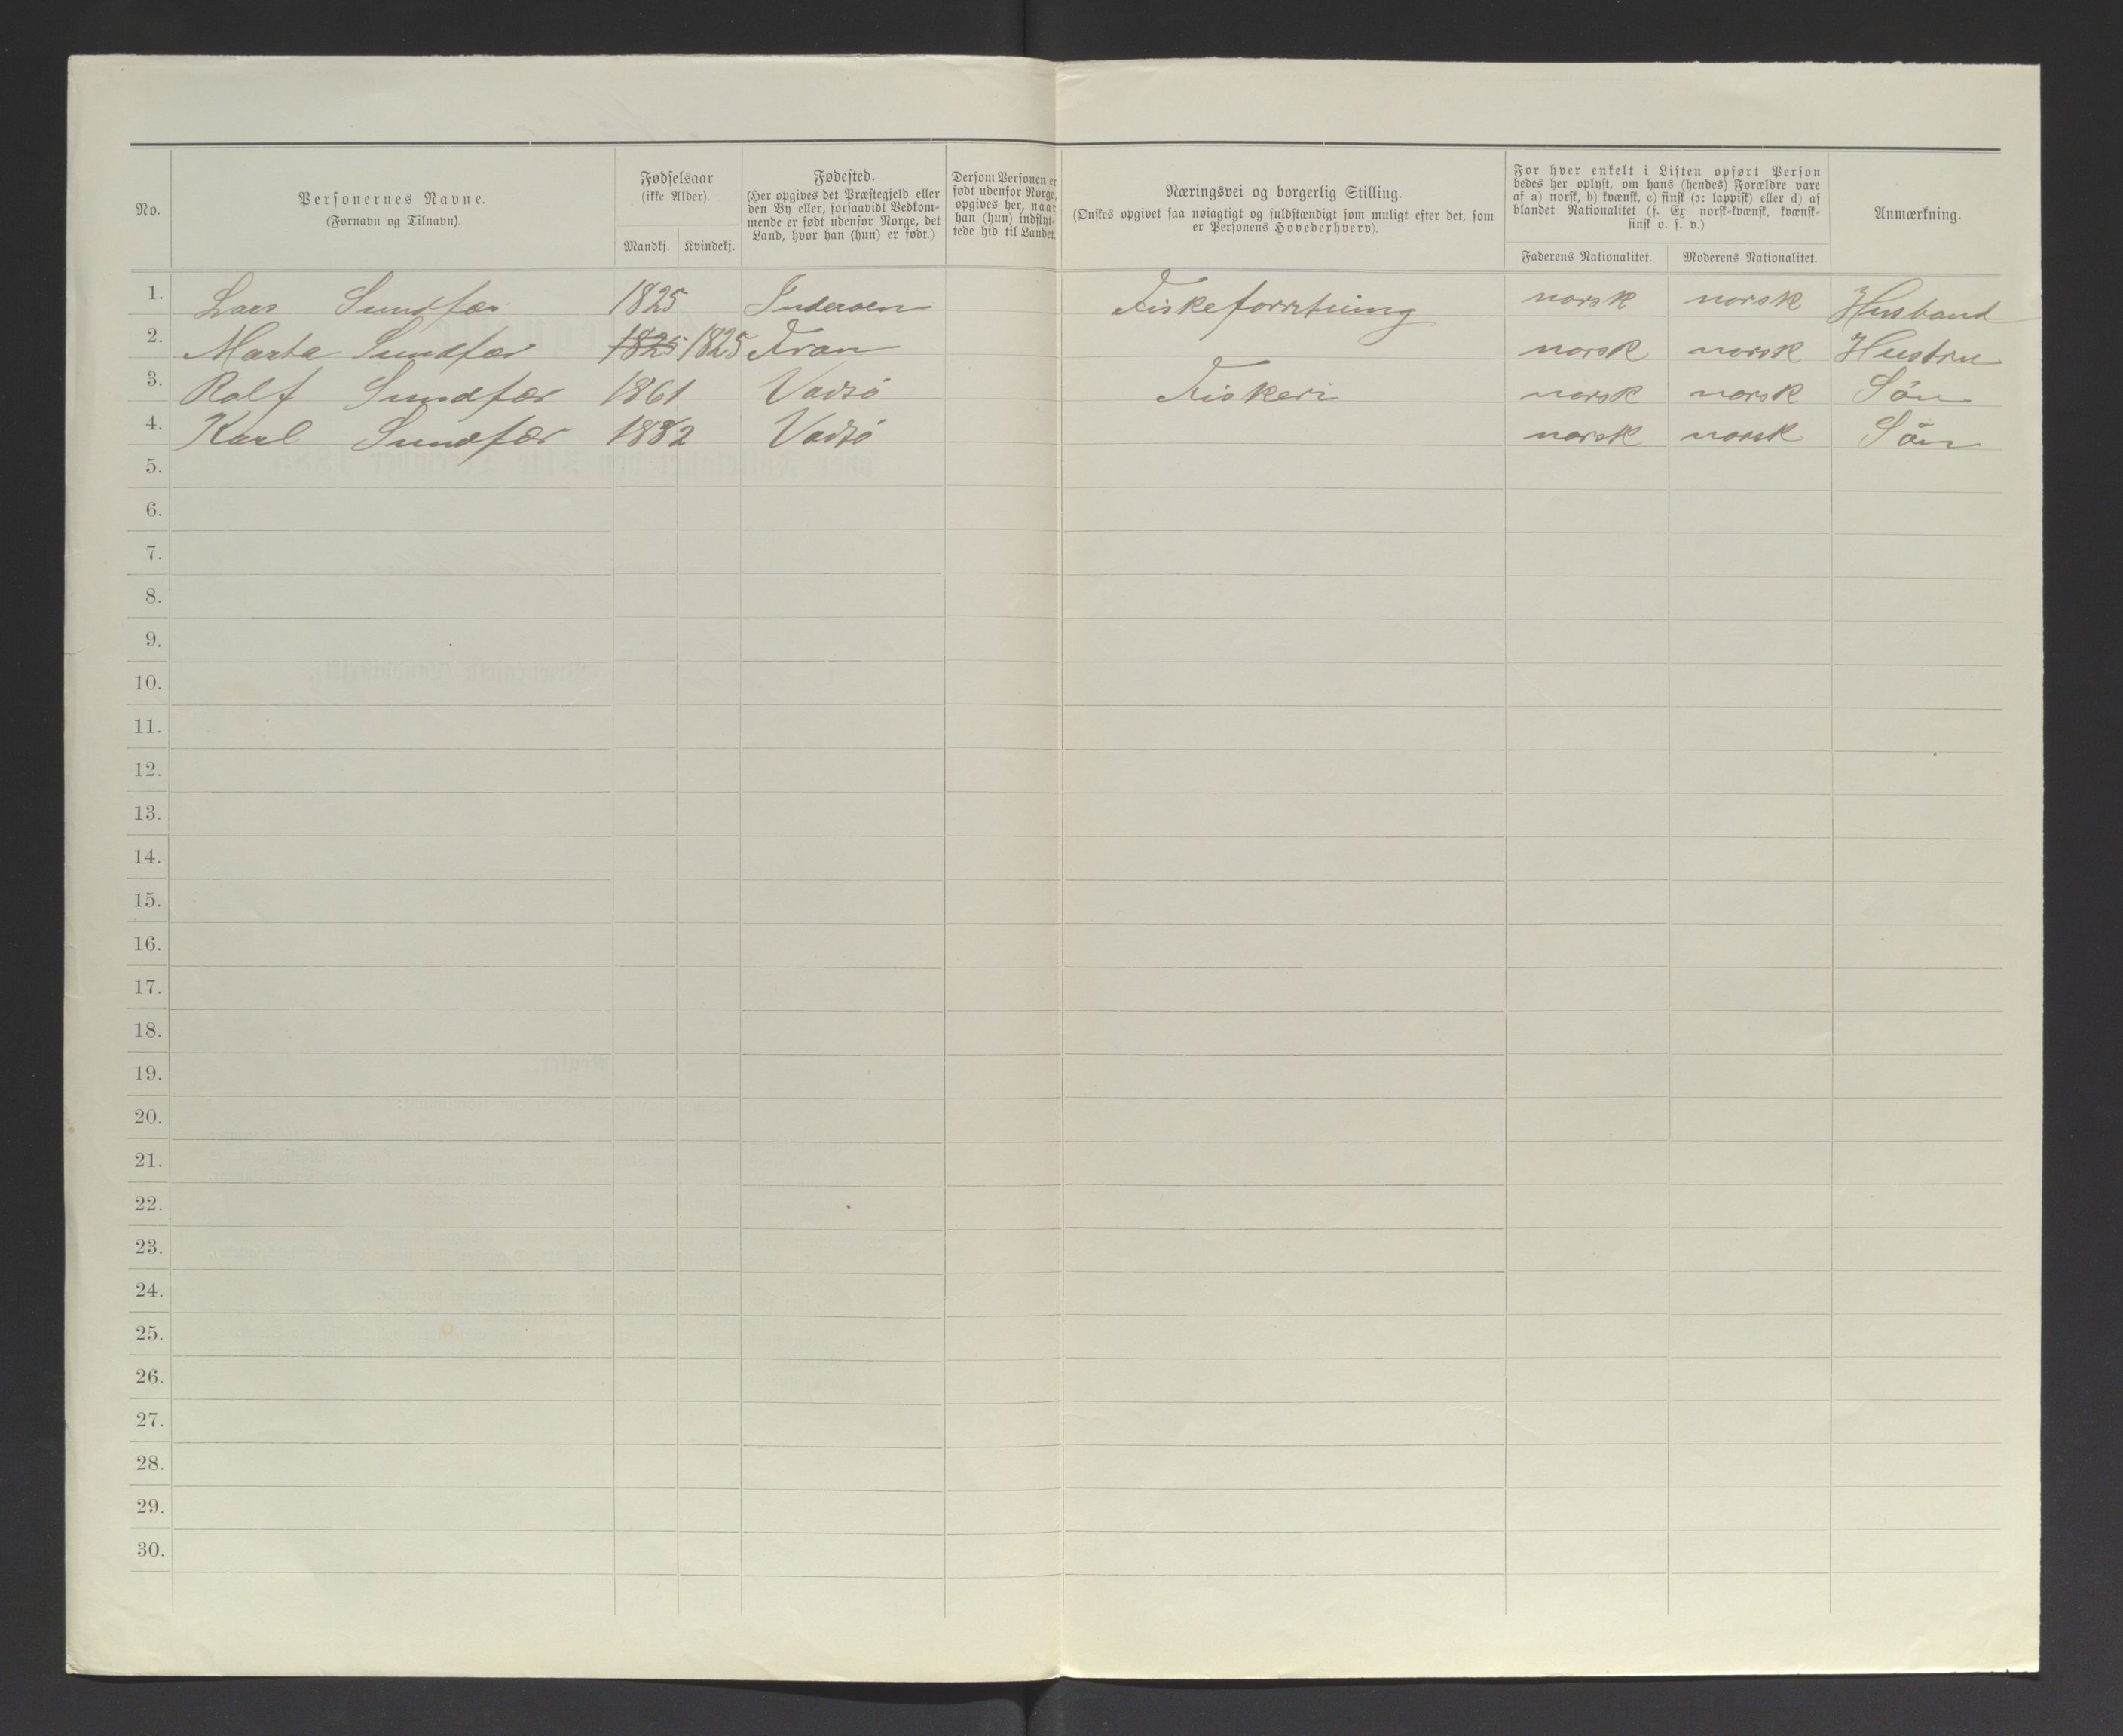 No.
Personernes Navne.
(Fornavn og Tilnavn).
Fødselsaar
(ikke Alder).
Mandkj. Kvindekj.
Fødested.
(Her opgives det Præstegjeld eller
den By eller, forsaavidt Vedkom-
mende er født udenfor Norge, det
Land, hvor han (hun) er født.)
Dersom Personen er
født udenfor Norge,
opgives her, naar
han (hun) indflyt-
tede hid til Landet.
Næringsvei og borgerlig Stilling.
(Ønskes opgivet saa nøiagtigt og fuldstændigt som muligt efter det, som
er Personens Hovederhverv).
For hver enkelt i Listen opført Person
bedes her oplyst, om hans (hendes) Forældre vare
af a) norsk, b) kvænsk, c) finsk (ɔ: lappisk) eller d) af
blandet Nationalitet (f. Ex. norsk-kvænsk, kvænsk-
finsk o. s. v.)
Faderens Nationalitet. Moderens Nationalitet.
Anmærkning.
1. Lars Sundfær 1825 Inderoen Fiskeforretning norsk norsk Husband
2. Marta Sundfær 1825 1825 norsk norsk Hustru
3. Rolf Sundfær 1861 Vadsö Fiskeri norsk norsk Sön
4. Karl Sundfær Vadsö norsk norsk Sön
5.
6.
7.
8.
9.
10.
11.
12.
13.
14.
15.
16.
17.
18.
19.
20.
21.
22.
23.
24.
25.
26.
27.
28.
29.
30.